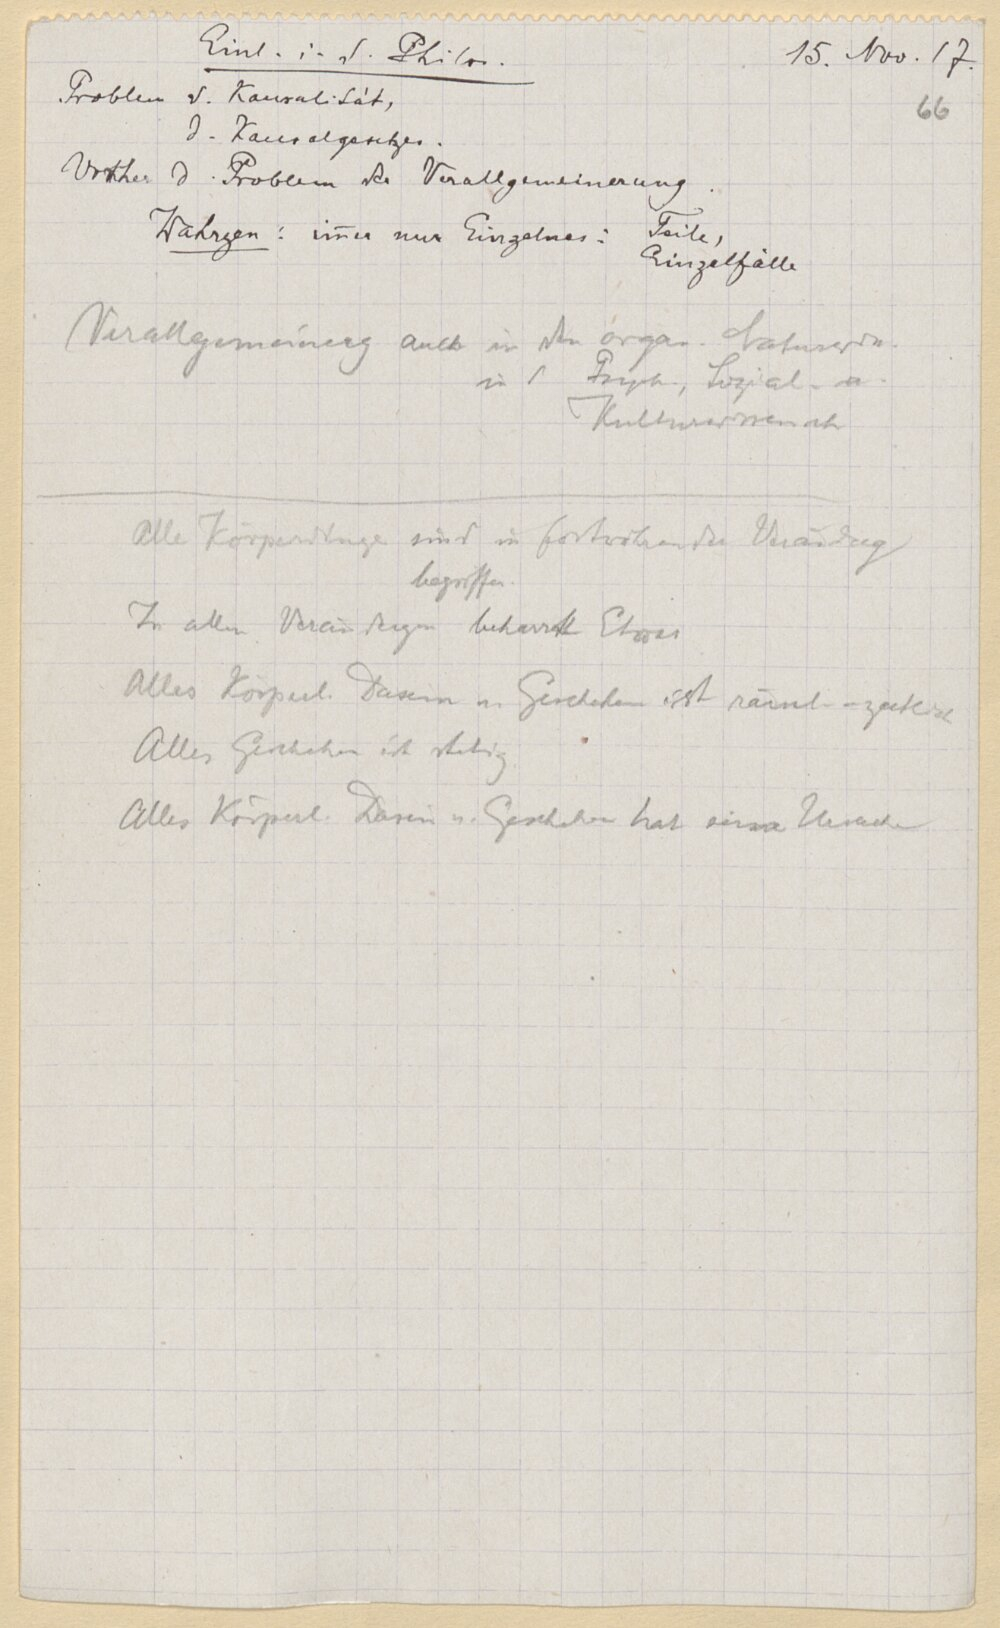 Einl. i. d. Philos.
15. Nov. 17.
66
Problem d. Kausalität,
d. Kausalgesetzes.
Vorher d. Problem der Verallgemeinerung.
Wahrgen: im̅er nur Einzelnes: Teile,
Einzelfälle
Verallgemeinerg auch in den organ. Naturwiss.
in d Psych., Sozial- u.
Kulturwissensch
Alle Körperdinge sind in fortwährender Verändrg
begriffen.
In allen Verändergen beharrt Etwas
Alles Körperl. Dasein u. Geschehen ist räuml-zeitlich
Alles Geschehen ist stetig.
Alles Körperl. Dasein u. Geschehen hat seine Ursache